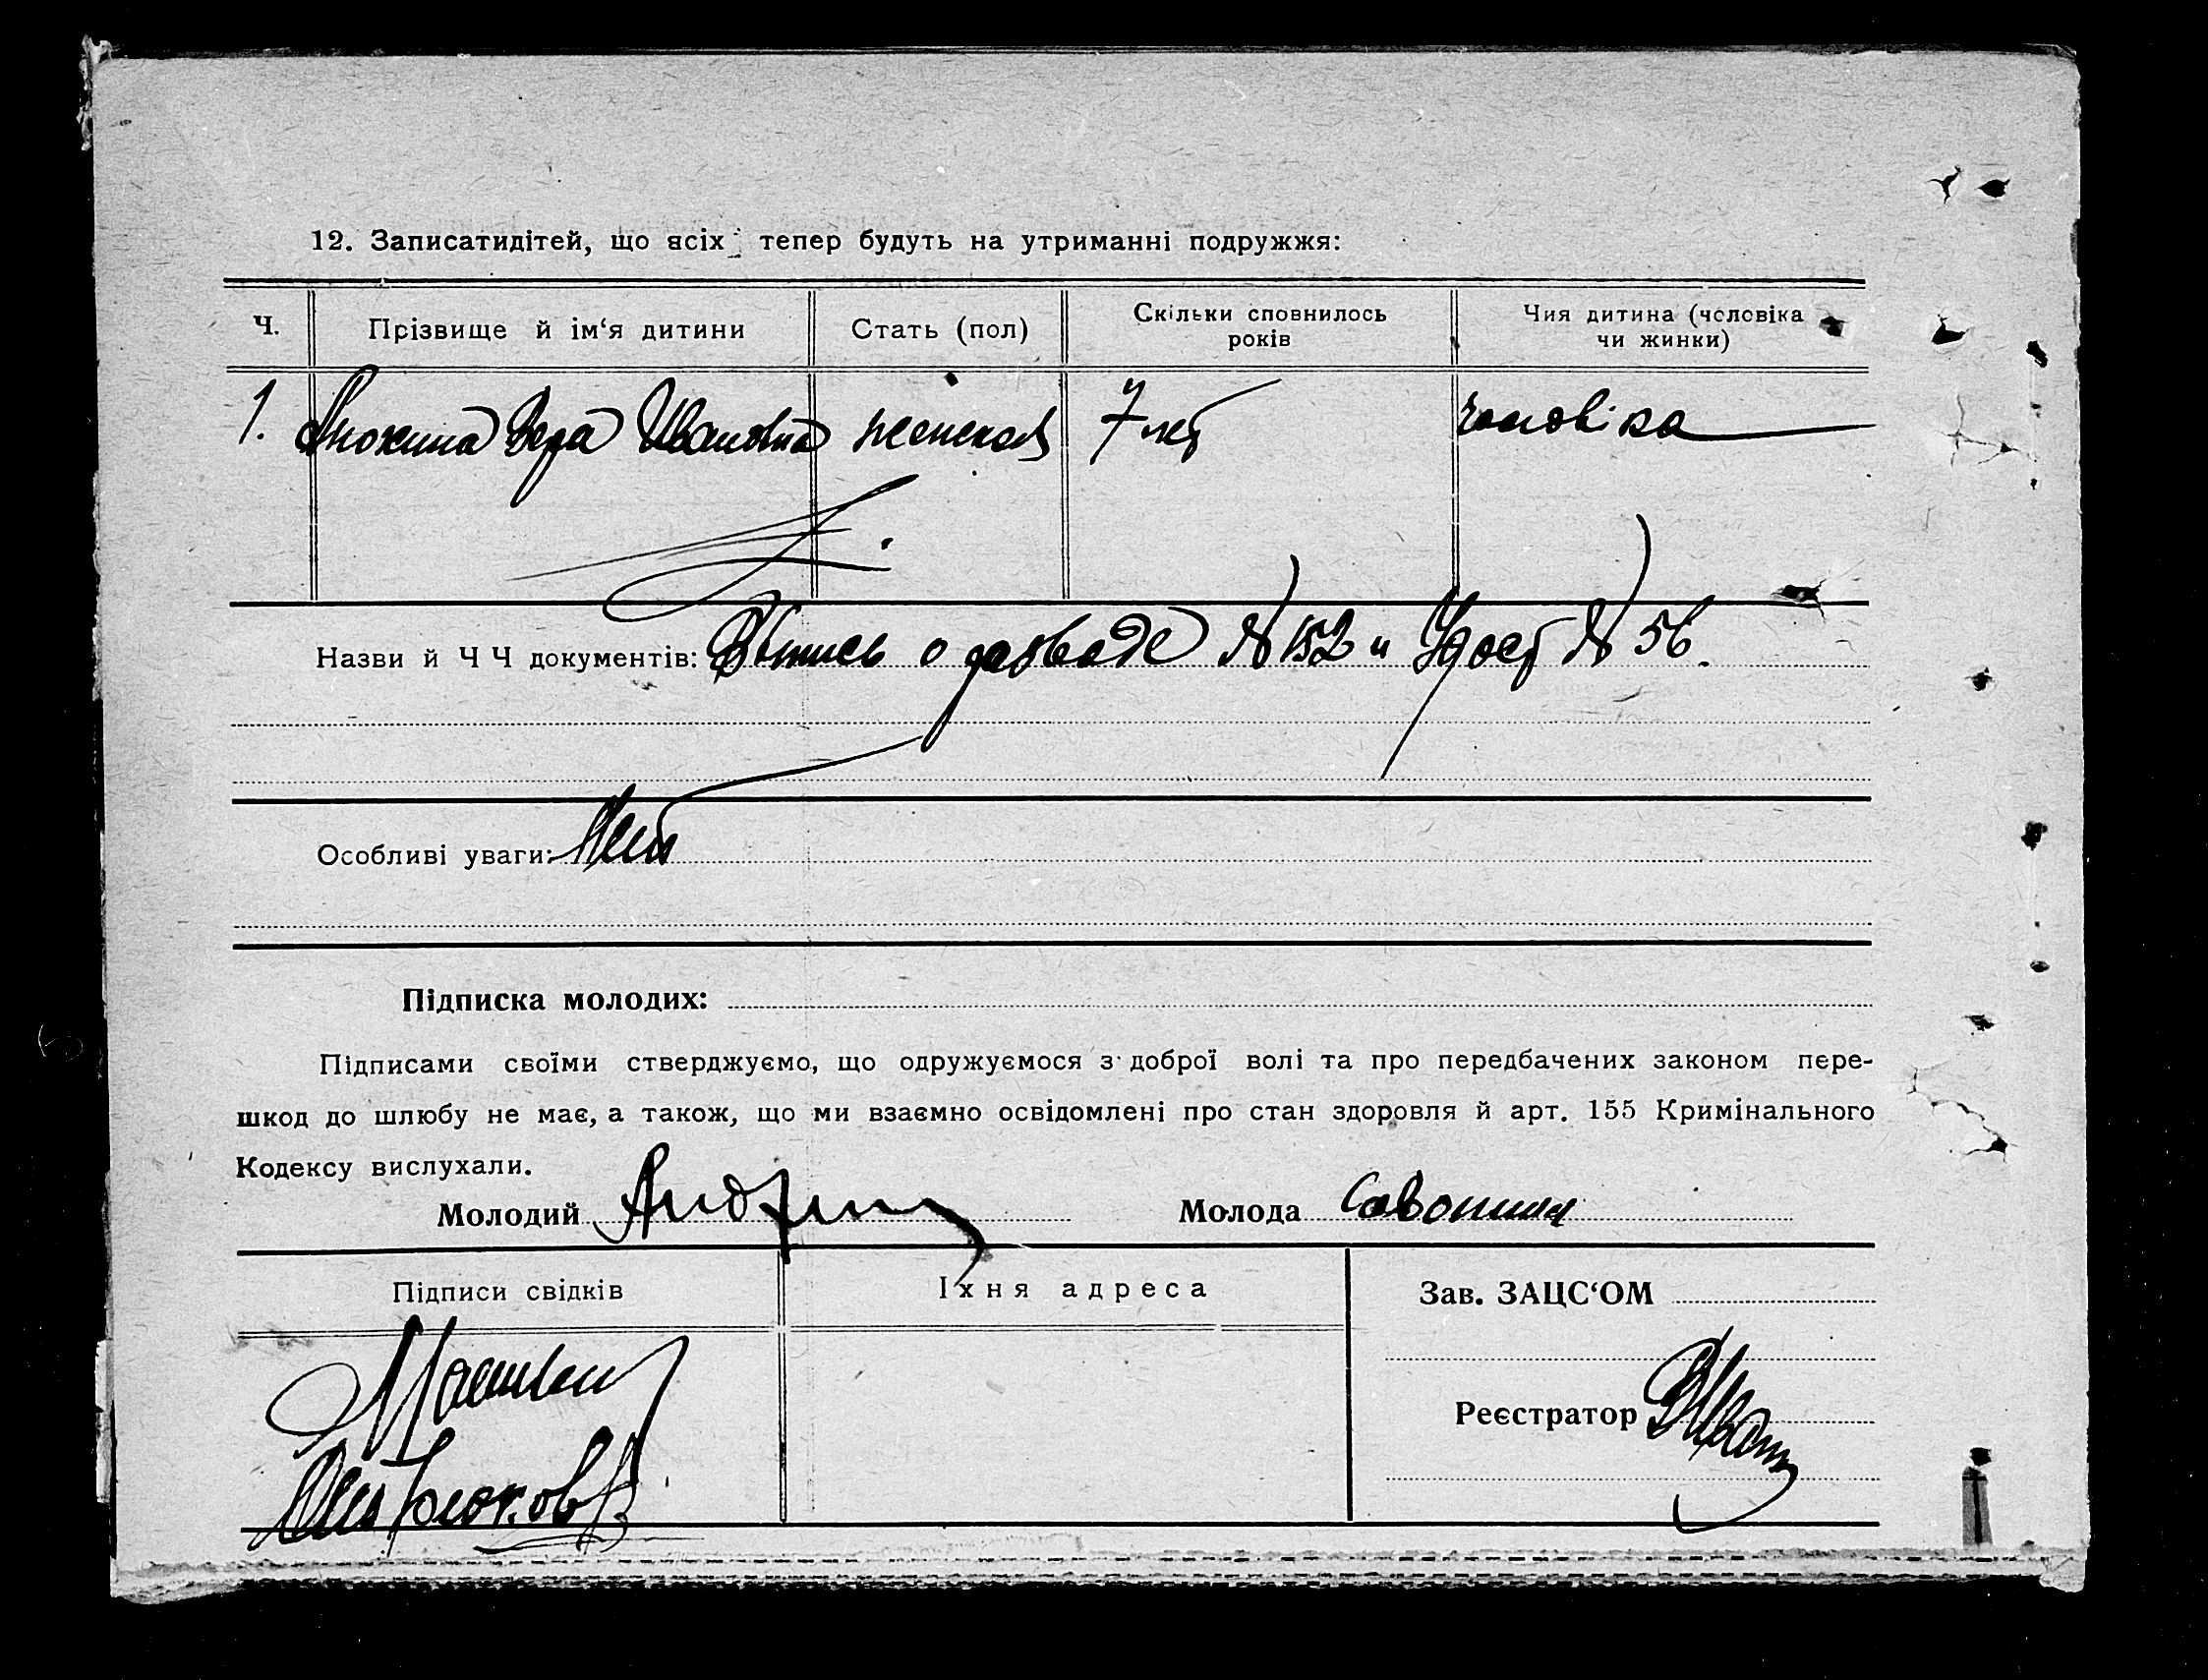 12. Записатидітей, що всіх тепер будуть на утриманні подружжя:
Ч. Прізвище й ім‘я дитини Стать (пол) Скільки сповнилось років Чия дитина (чоловіка чи жинки)
1. Анохина Вера Ивановна женская 7 лет чоловіка
Назви й Ч Ч документів: Выпись о разводе № 152 и Удост № 56.
Особливі уваги: Нет
Підписка молодих:
Підписами своїми стверджуємо, що одружуємося з доброї волі та про передбачених законом пере-
шкод до шлюбу не має, а також, що ми взаємно освідомлені про стан здоровля й арт. 155 Кримінального
Кодексу вислухали.
Молодий Молода Савонина
Підписи свідків Їхня адреса Зав. ЗАЦС‘ОМ
Реєстратор